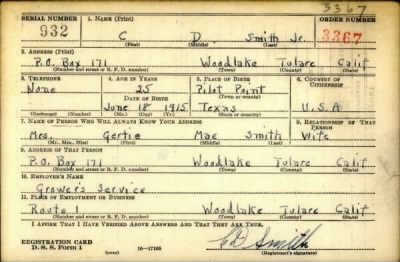 3367
SERIAL NUMBER 1. NAME (Print) ORDER NUMBER
932 C D. Smith Jr. 3367
(First) (Middle) (Last)
2. ADDRESS (Print)
P.O. Box 171 Woodlake Tulare Calif
(Number and street or R. F. D. number) (Town) (County) (State)
3. TELEPHONE 4. AGE IN YEARS 5. PLACE OF BIRTH 6. COUNTRY OF CITIZENSHIP
None 25 Pilot Point
DATE OF BIRTH (Town or county)
June 18 1915 Texas U.S.A
(Exchange) (Number) (Mo.) (Day) (Yr.) (State or country)
7. NAME OF PERSON WHO WILL ALWAYS KNOW YOUR ADDRESS 8. RELATIONSHIP OF THAT PERSON
Mrs. Gertie Mae Smith Wife
(Mr., Mrs., Miss) (First) (Middle) (Last)
9. ADDRESS OF THAT PERSON
P.O. Box 171 Woodlake Tulare Calif
(Number and street or R. F. D. number) (Town) (County) (State)
10. EMPLOYER'S NAME
Grower's Service
11. PLACE OF EMPLOYMENT OR BUSINESS
Route 1 Woodlake Tulare Calif
(Number and street or R. F. D. number) (Town) (County) (State)
I AFFIRM THAT I HAVE VERIFIED ABOVE ANSWERS AND THAT THEY ARE TRUE.
REGISTRATION CARD
D. S. S. Form 1 (over) 16—17105 CD Smith
(Registrant's signature)